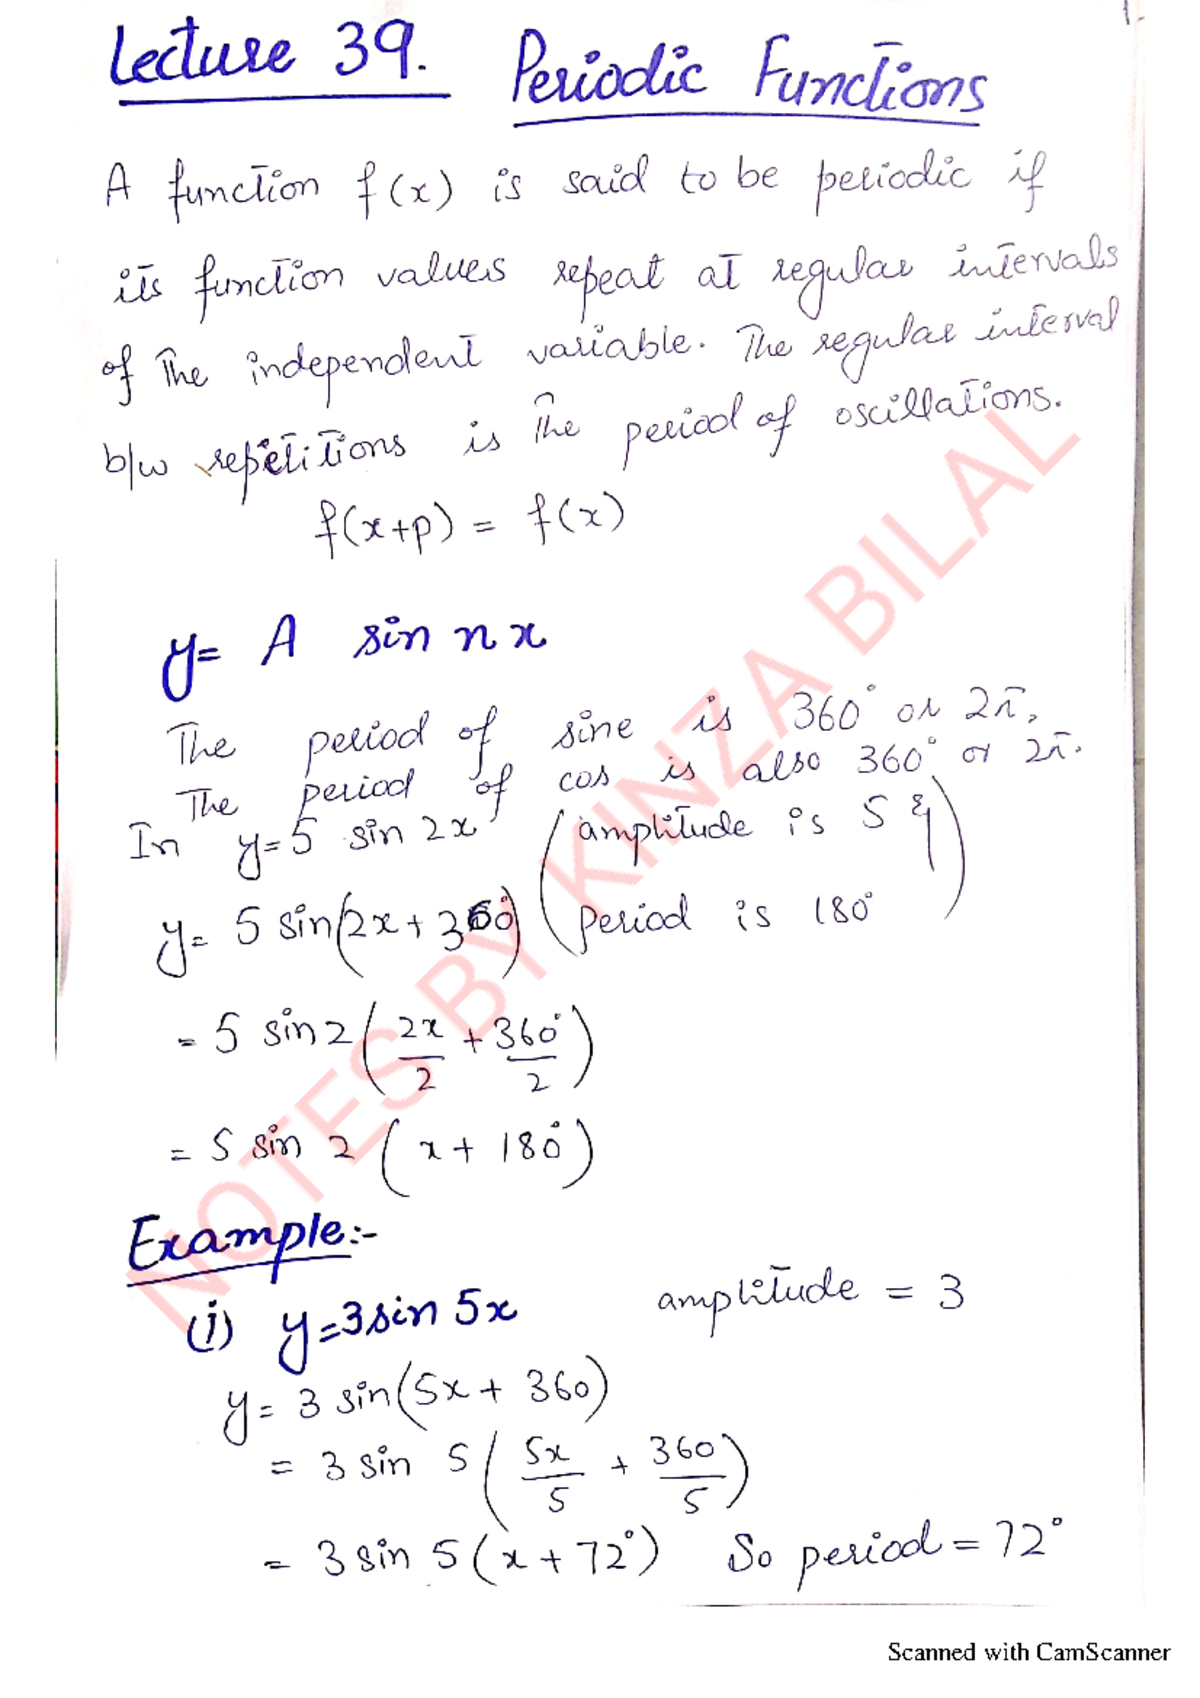 1.
Lecture 39. Periodic Functions
A function f(x) is said to be periodic if
its function values repeat at regular intervals
of the independent variable. The regular interval
b/w repetitions is the period of oscillations.
f(x+p) = f(x)
y = A sin nx
The period of sine is 360° or 2π.
The period of cos is also 360° or 2π.
In y=5 sin 2x (amplitude is 5 &
y= 5 sin(2x+360) period is 180°)
= 5 sin2(2x/2 + 360°/2)
= 5 sin 2 (x+ 180°)
Example:-
(i) y=3sin 5x amplitude = 3
y= 3 sin(5x+ 360)
= 3 sin 5(5x/5 + 360/5)
= 3 sin 5(x+72°) So period = 72°
NOTES BY KINZA BILAL
Scanned with CamScanner